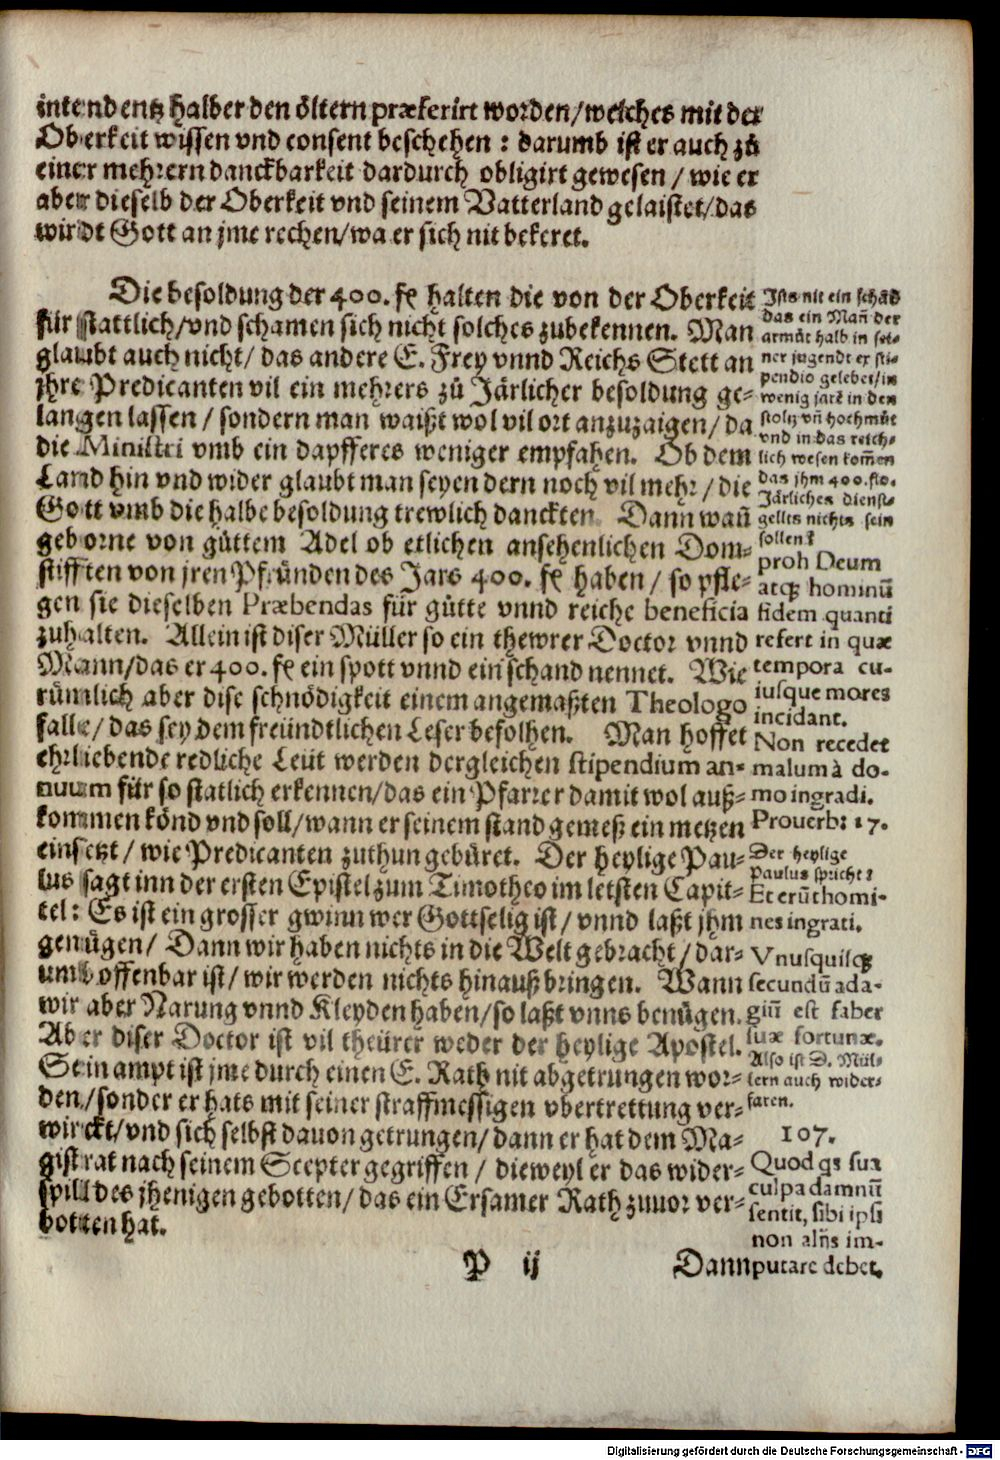 intendentz halber den öltern præferirt worden/welches mit der
Oberkeit wissen vnd consent beschehen : darumb ist er auch zů
einer mehrern danckbarkeit dardurch obligirt gewesen / wie er
aber dieselb der Oberkeit vnd seinem Vatterland gelaistet/das
wirdt Gott an jme rechen/wa er sich nit bekeret.
Die besoldung der 400. fl halten die von der Oberkeit
für stattlich/vnd schamen sich nicht solches zubekennen. Man
glaubt auch nicht/ das andere E. Frey vnnd Reichs Stett an
jhre Predicanten vil ein mehrers zů Järlicher besoldung ge-
langen lassen / sondern man waißt wol vil ort anzuzaigen/ da
die Ministri vmb ein dapfferes weniger empfahen. Ob dem
Land hin vnd wider glaubt man seyen dern noch vil mehr / die
Gott vmb die halbe besoldung trewlich danckten. Dann wañ
geborne von güttem Adel ob etlichen ansehenlichen Dom-
stifften von jren Pfründen des Jars 400. fl haben / so pfle-
gen sie dieselben Præbendas für gütte vnnd reiche beneficia
zuhalten. Allein ist diser Müller so ein thewrer Doctor vnnd
Mann/das er 400. fl ein spott vnnd ein schand nennet. Wie
rümlich aber dise schnödigkeit einem angemaßten Theologo
falle / das sey dem freündtlichen Leser befolhen. Man hoffet
ehrliebende redliche Leüt werden dergleichen stipendium an-
nuum für so statlich erkennen/das ein Pfarrer damit wol auß-
kommen könd vnd soll/wann er seinem stand gemeß ein metzen
einsetzt / wie Predicanten zuthun gebüret. Der heylige Pau-
lus sagt inn der ersten Epistel zum Timotheo im letsten Capit-
tel : Es ist ein grosser gwinn wer Gottselig ist / vnnd laßt jhm
genügen / Dann wir haben nichts in die Welt gebracht / dar-
umb offenbar ist / wir werden nichts hinauß bringen. Wann
wir aber Narung vnnd Kleyden haben/so laßt vnns benügen.
Aber diser Doctor ist vil theürer weder der heylige Apostel.
Sein ampt ist jme durch einen E. Rath nit abgetrungen wor-
den/sonder er hats mit seiner straffmessigen vbertrettung ver-
wirckt/vnd sich selbst dauon getrungen/ dann er hat dem Ma-
gistrat nach seinem Scepter gegriffen / dieweyl er das wider-
spill des jhenigen gebotten / das ein Ersamer Rath zuuor ver-
botten hat.
Ists nit ein schād
das ein Mañ der
armůt halb in sei-
ner jugendt er sti-
pendio gelebet/in
wenig jarē in den
stoltz vñ hochmůt
vnd in das reich-
lich wesen kom̄en
das jhm 400. flo.
Järliches dienst-
gellts nichts sein
sollen?
proh Deum
atq; hominū
fidem quanti
refert in quæ
tempora cu-
iusque mores
incidant.
Non recedet
malum à do-
mo ingrati.
Prouerb: 17.
Der heylige
Paulus spricht:
Et erūt homi-
nes ingrati.
Vnusquisq;
secundū ada-
giū est faber
suæ fortunæ.
Also ist D. Mül-
lern auch wider-
faren.
107.
Quod qs sua
culpa damnū
sentit, sibi ipsi
non alijs im-
putare debet.
P ij
Dann
Digitalisierung gefördert durch die Deutsche Forschungsgemeinschaft - DFG